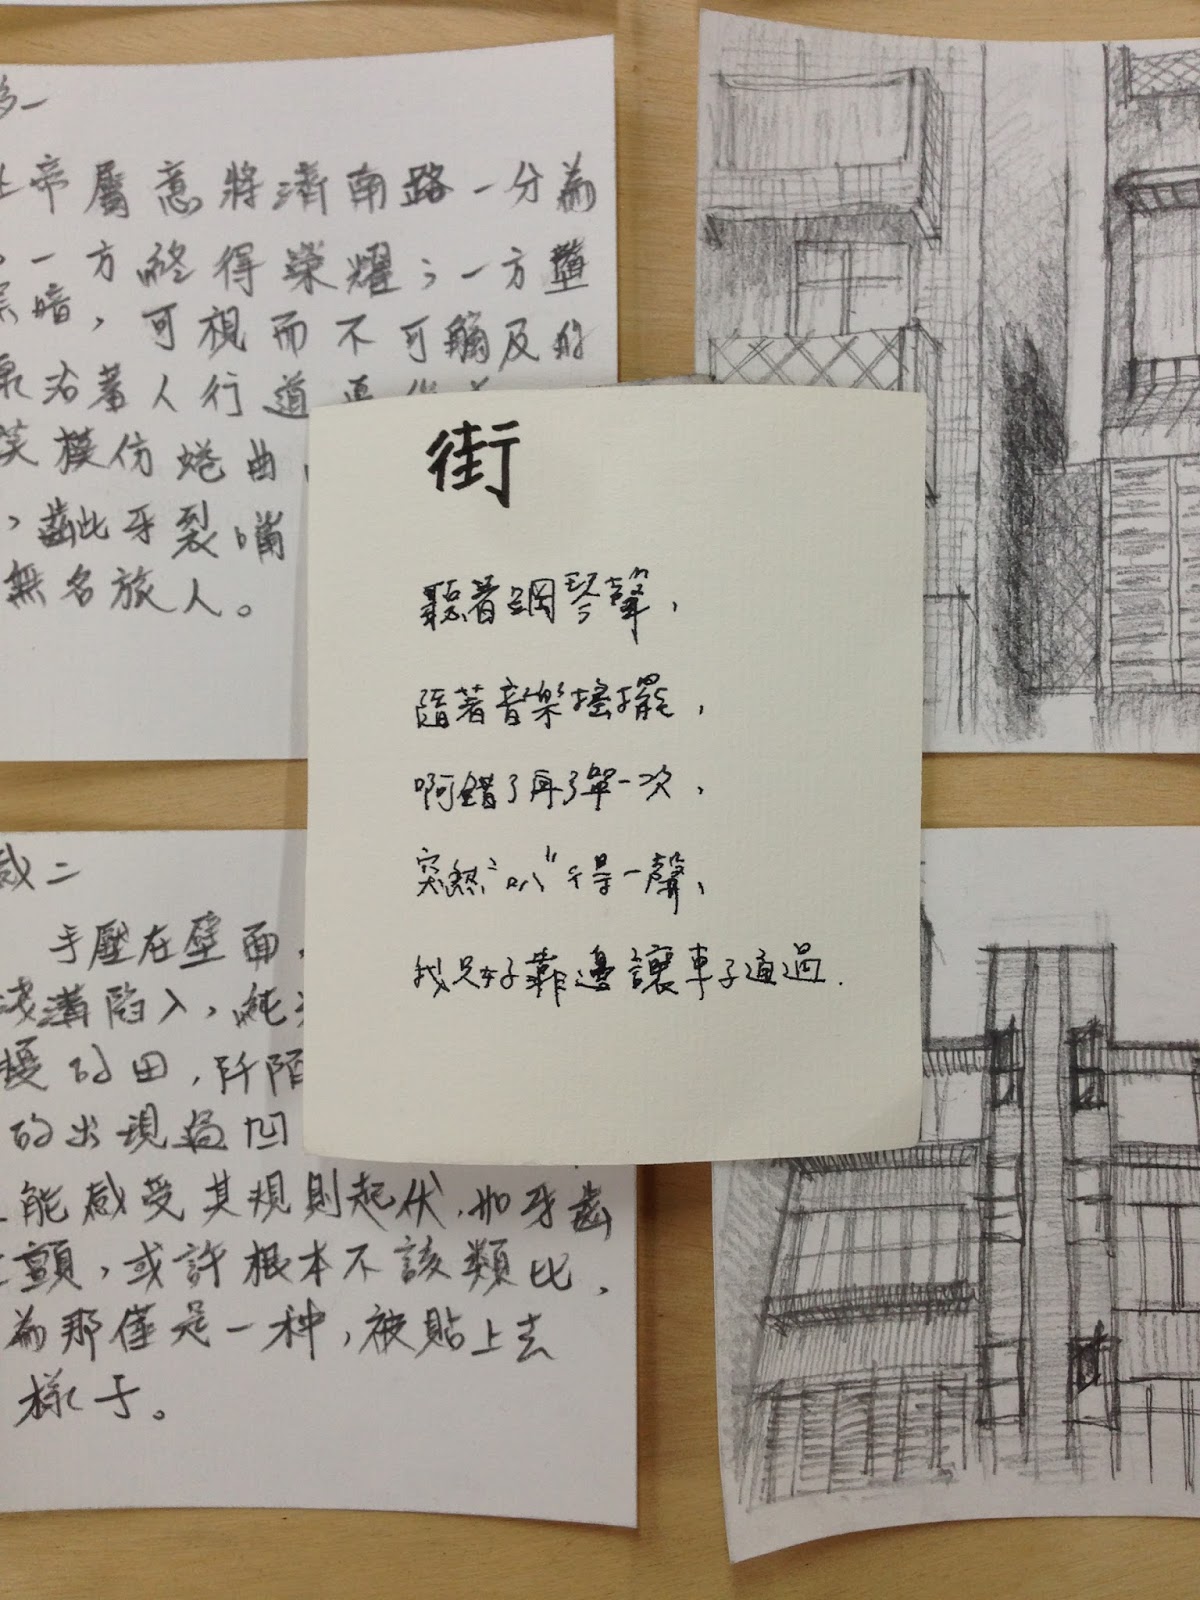 一
帝屬意將濟南路一分為
一方終得榮耀；一方墮
暗，可視而不可觸及的
沿著人行道
笑模仿蜷曲
，齜牙裂嘴
無名旅人。
街
聽著鋼琴聲，
隨著音樂搖擺，
啊錯了再了彈一次，
突然"叭"得一聲，
我只好靠邊讓車子通過.
感二
手壓在壁面，
淺溝陷入，純
擾的田，阡陌
的出現過凹
能感受其規則起伏，如牙齒
顫，或許根本不該類比，
為那僅是一种，被貼上去
樣子。